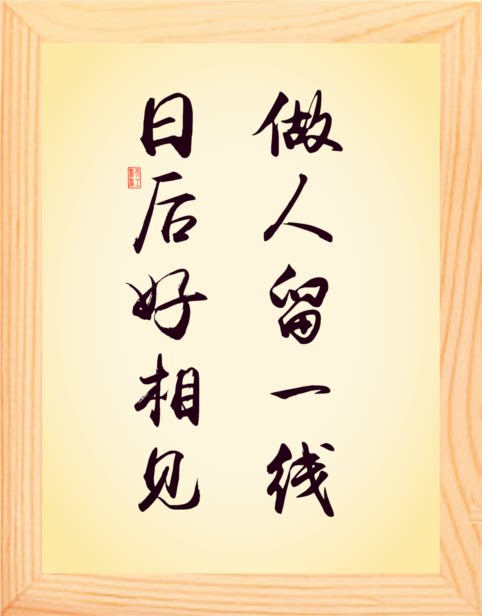 做人留一线
日后好相见